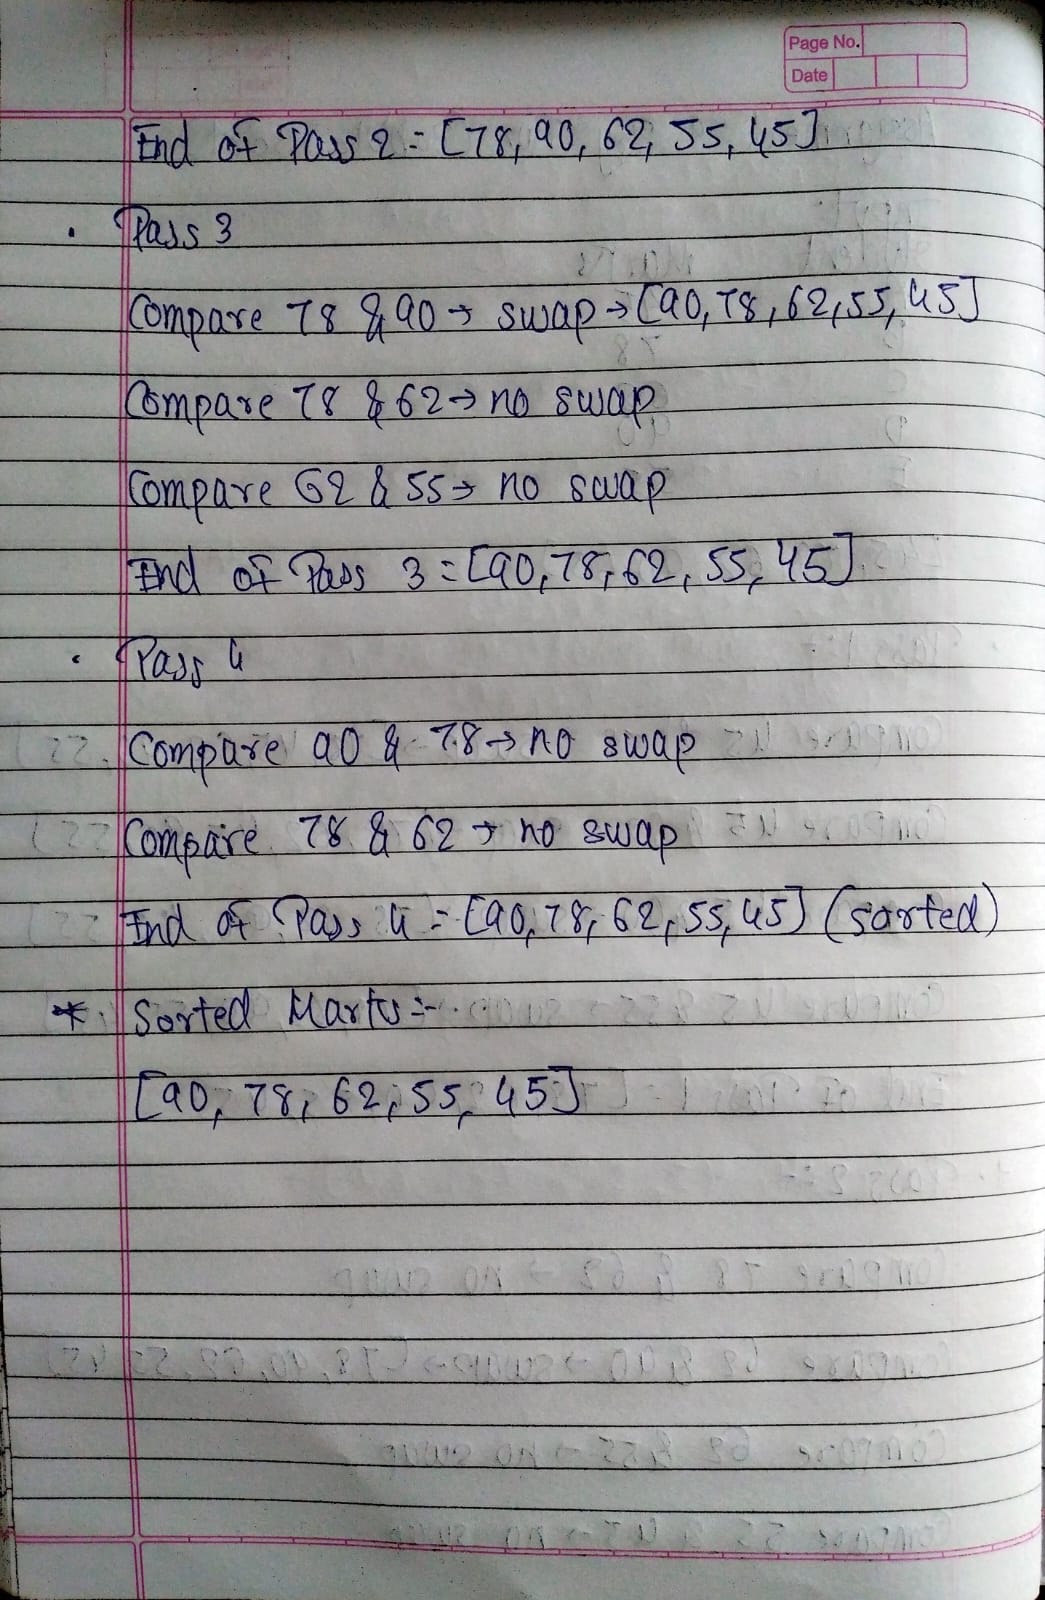 Page No.
Date
End of Pass 2 = [78, 90, 62, 55, 45]
• Pass 3
Compare 78 & 90 → swap → [90, 78, 62, 55, 45]
Compare 78 & 62 → no swap
Compare 62 & 55 → no swap
End of Pass 3 = [90, 78, 62, 55, 45]
• Pass 4
Compare 90 & 78 → no swap
Compare 78 & 62 → no swap
End of Pass 4 = [90, 78, 62, 55, 45] (sorted)
* Sorted Marks :-
[90, 78, 62, 55, 45]